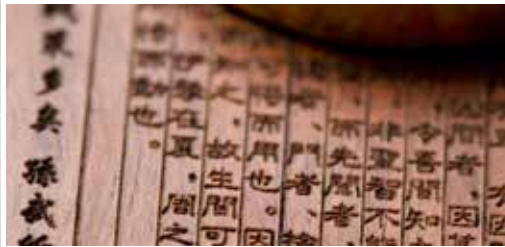 間者、因
令吾間知
非聖智不
而先聞者、
者、門者、
得而用也。因
之、故生間可
伊摯在夏、周之
而動也。
多矣 孫武所